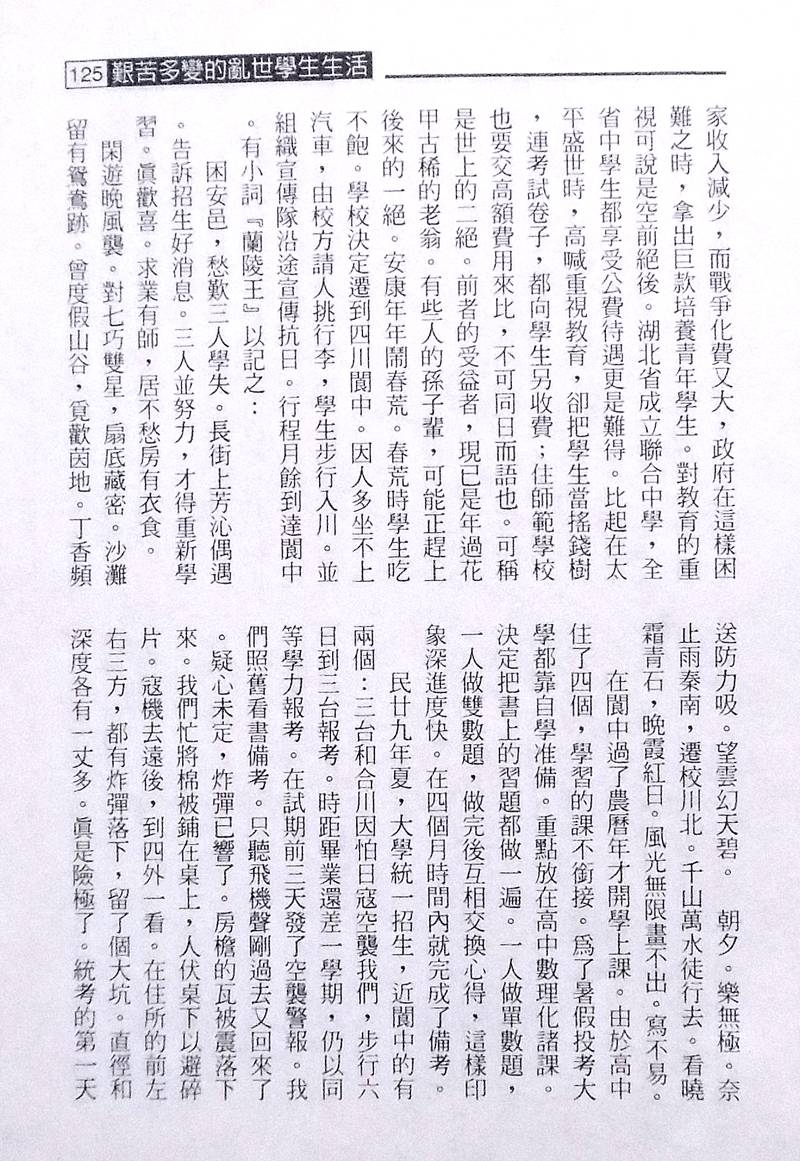 125 艱苦多變的亂世學生生活
家收入減少，而戰爭化費又大，政府在這樣困
難之時，拿出巨款培養青年學生。對教育的重
視可說是空前絕後。湖北省成立聯合中學，全
省中學生都享受公費待遇更是難得。比起在太
平盛世時，高喊重視教育，卻把學生當搖錢樹
，連考試卷子，都向學生另收費；住師範學校
也要交高額費用來比，不可同日而語也。可稱
是世上的二絕。前者的受益者，現已是年過花
甲古稀的老翁。有些人的孫子輩，可能正趕上
後來的一絕。安康年年鬧春荒。春荒時學生吃
不飽。學校決定遷到四川閬中。因人多坐不上
汽車，由校方請人挑行李，學生步行入川。並
組織宣傳隊沿途宣傳抗日。行程月餘到達閬中
。有小詞『蘭陵王』以記之：
困安邑，愁歎三人學失。長街上芳沁偶遇
。告訴招生好消息。三人並努力，才得重新學
習。眞歡喜。求業有師，居不愁房有衣食。
閑遊晚風襲。對七巧雙星，扇底藏密。沙灘
留有鴛鴦跡。曾度假山谷，覓歡茵地。丁香頻
送防力吸。望雲幻天碧。　朝夕。樂無極。奈
止雨秦南，遷校川北。千山萬水徒行去。看曉
霜青石，晚霞紅日。風光無限畫不出。寫不易。
在閬中過了農曆年才開學上課。由於高中
住了四個，學習的課不銜接。爲了暑假投考大
學都靠自學准備。重點放在高中數理化諸課。
決定把書上的習題都做一遍。一人做單數題，
一人做雙數題，做完後互相交換心得，這樣印
象深進度快。在四個月時間內就完成了備考。
民廿九年夏，大學統一招生，近閬中的有
兩個：三台和合川因怕日寇空襲我們，步行六
日到三台報考。時距畢業還差一學期，仍以同
等學力報考。在試期前三天發了空襲警報。我
們照舊看書備考。只聽飛機聲剛過去又回來了
。疑心未定，炸彈已響了。房檐的瓦被震落下
來。我們忙將棉被鋪在桌上，人伏桌下以避碎
片。寇機去遠後，到四外一看。在住所的前左
右三方，都有炸彈落下，留了個大坑。直徑和
深度各有一丈多。眞是險極了。統考的第一天